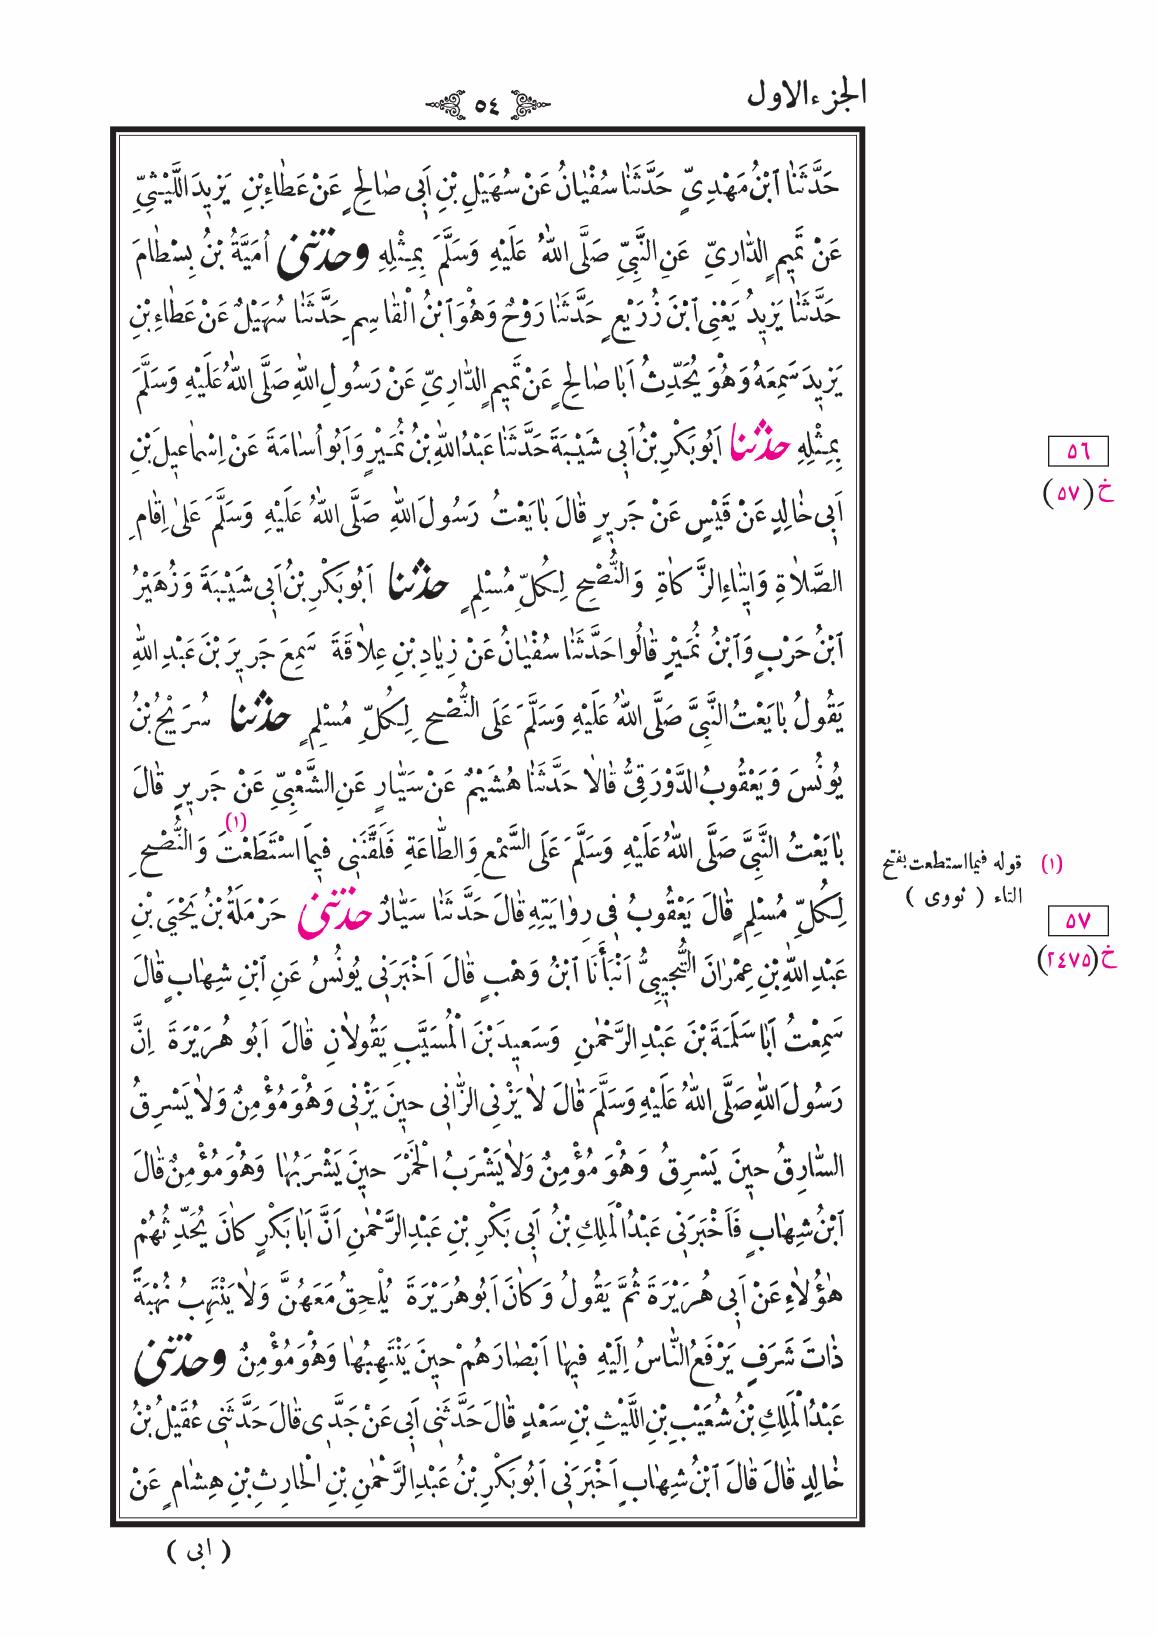 الجزء الاول
٥٤
حَدَّثَنَا ابْنُ مَهْدِىٍّ حَدَّثَنَا سُفْيَانُ عَنْ سُهَيْلِ بْنِ اَبِى صَالِحٍ عَنْ عَطَاءِ بْنِ يَزِيدَ اللَّيْثِىِّ
عَنْ تَمِيمٍ الدَّارِىِّ عَنِ النَّبِىِّ صَلَّى اللهُ عَلَيْهِ وَسَلَّمَ بِمِثْلِهِ وحدثنى اُمَيَّةُ بْنُ بِسْطَامَ
حَدَّثَنَا يَزِيدُ يَعْنِى ابْنَ زُرَيْعٍ حَدَّثَنَا رَوْحٌ وَهُوَ ابْنُ الْقَاسِمِ حَدَّثَنَا سُهَيْلٌ عَنْ عَطَاءِ بْنِ
يَزِيدَ سَمِعَهُ وَهُوَ يُحَدِّثُ اَبَا صَالِحٍ عَنْ تَمِيمٍ الدَّارِىِّ عَنْ رَسُولِ اللهِ صَلَّى اللهُ عَلَيْهِ وَسَلَّمَ
بِمِثْلِهِ حدثنا اَبُو بَكْرِ بْنُ اَبِى شَيْبَةَ حَدَّثَنَا عَبْدُ اللهِ بْنُ نُمَيْرٍ وَاَبُو اُسَامَةَ عَنْ اِسْمَاعِيلَ بْنِ
٥٦
اَبِى خَالِدٍ عَنْ قَيْسٍ عَنْ جَرِيرٍ قَالَ بَايَعْتُ رَسُولَ اللهِ صَلَّى اللهُ عَلَيْهِ وَسَلَّمَ عَلَى اِقَامِ
خ (٥٧)
الصَّلَاةِ وَاِيتَاءِ الزَّكَاةِ وَالنُّصْحِ لِكُلِّ مُسْلِمٍ حدثنا اَبُو بَكْرِ بْنُ اَبِى شَيْبَةَ وَزُهَيْرُ
ابْنُ حَرْبٍ وَابْنُ نُمَيْرٍ قَالُوا حَدَّثَنَا سُفْيَانُ عَنْ زِيَادِ بْنِ عِلَاقَةَ سَمِعَ جَرِيرَ بْنَ عَبْدِ اللهِ
يَقُولُ بَايَعْتُ النَّبِىَّ صَلَّى اللهُ عَلَيْهِ وَسَلَّمَ عَلَى النُّصْحِ لِكُلِّ مُسْلِمٍ حدثنا سُرَيْجُ بْنُ
يُونُسَ وَيَعْقُوبُ الدَّوْرَقِىُّ قَالَا حَدَّثَنَا هُشَيْمٌ عَنْ سَيَّارٍ عَنِ الشَّعْبِىِّ عَنْ جَرِيرٍ قَالَ
بَايَعْتُ النَّبِىَّ صَلَّى اللهُ عَلَيْهِ وَسَلَّمَ عَلَى السَّمْعِ وَالطَّاعَةِ فَلَقَّنَنِى فِيمَا اسْتَطَعْتَ (١) وَالنُّصْحِ
(١) قوله فيما استطعت بفتح
التاء ( نووى )
لِكُلِّ مُسْلِمٍ قَالَ يَعْقُوبُ فِى رِوَايَتِهِ قَالَ حَدَّثَنَا سَيَّارٌ حدثنى حَرْمَلَةُ بْنُ يَحْيَى بْنِ
٥٧
عَبْدِ اللهِ بْنِ عِمْرَانَ التُّجِيبِىُّ اَنْبَأَنَا ابْنُ وَهْبٍ قَالَ اَخْبَرَنِى يُونُسُ عَنِ ابْنِ شِهَابٍ قَالَ
خ (٢٤٧٥)
سَمِعْتُ اَبَا سَلَمَةَ بْنَ عَبْدِ الرَّحْمٰنِ وَسَعِيدَ بْنَ الْمُسَيَّبِ يَقُولَانِ قَالَ اَبُو هُرَيْرَةَ اِنَّ
رَسُولَ اللهِ صَلَّى اللهُ عَلَيْهِ وَسَلَّمَ قَالَ لَا يَزْنِى الزَّانِى حِينَ يَزْنِى وَهُوَ مُؤْمِنٌ وَلَا يَسْرِقُ
السَّارِقُ حِينَ يَسْرِقُ وَهُوَ مُؤْمِنٌ وَلَا يَشْرَبُ الْخَمْرَ حِينَ يَشْرَبُهَا وَهُوَ مُؤْمِنٌ قَالَ
ابْنُ شِهَابٍ فَاَخْبَرَنِى عَبْدُ الْمَلِكِ بْنُ اَبِى بَكْرِ بْنِ عَبْدِ الرَّحْمٰنِ اَنَّ اَبَا بَكْرٍ كَانَ يُحَدِّثُهُمْ
هٰؤُلَاءِ عَنْ اَبِى هُرَيْرَةَ ثُمَّ يَقُولُ وَكَانَ اَبُو هُرَيْرَةَ يُلْحِقُ مَعَهُنَّ وَلَا يَنْتَهِبُ نُهْبَةً
ذَاتَ شَرَفٍ يَرْفَعُ النَّاسُ اِلَيْهِ فِيهَا اَبْصَارَهُمْ حِينَ يَنْتَهِبُهَا وَهُوَ مُؤْمِنٌ وحدثنى
عَبْدُ الْمَلِكِ بْنُ شُعَيْبِ بْنِ اللَّيْثِ بْنِ سَعْدٍ قَالَ حَدَّثَنِى اَبِى عَنْ جَدِّى قَالَ حَدَّثَنِى عُقَيْلُ بْنُ
خَالِدٍ قَالَ قَالَ ابْنُ شِهَابٍ اَخْبَرَنِى اَبُو بَكْرِ بْنُ عَبْدِ الرَّحْمٰنِ بْنِ الْحَارِثِ بْنِ هِشَامٍ عَنْ
( ابى )